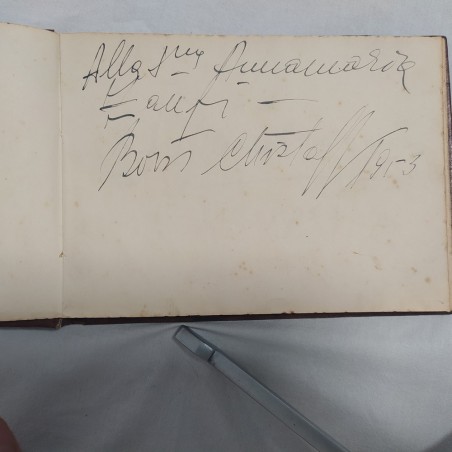 Alla S.na Annamaria
Boris Christoff 1953